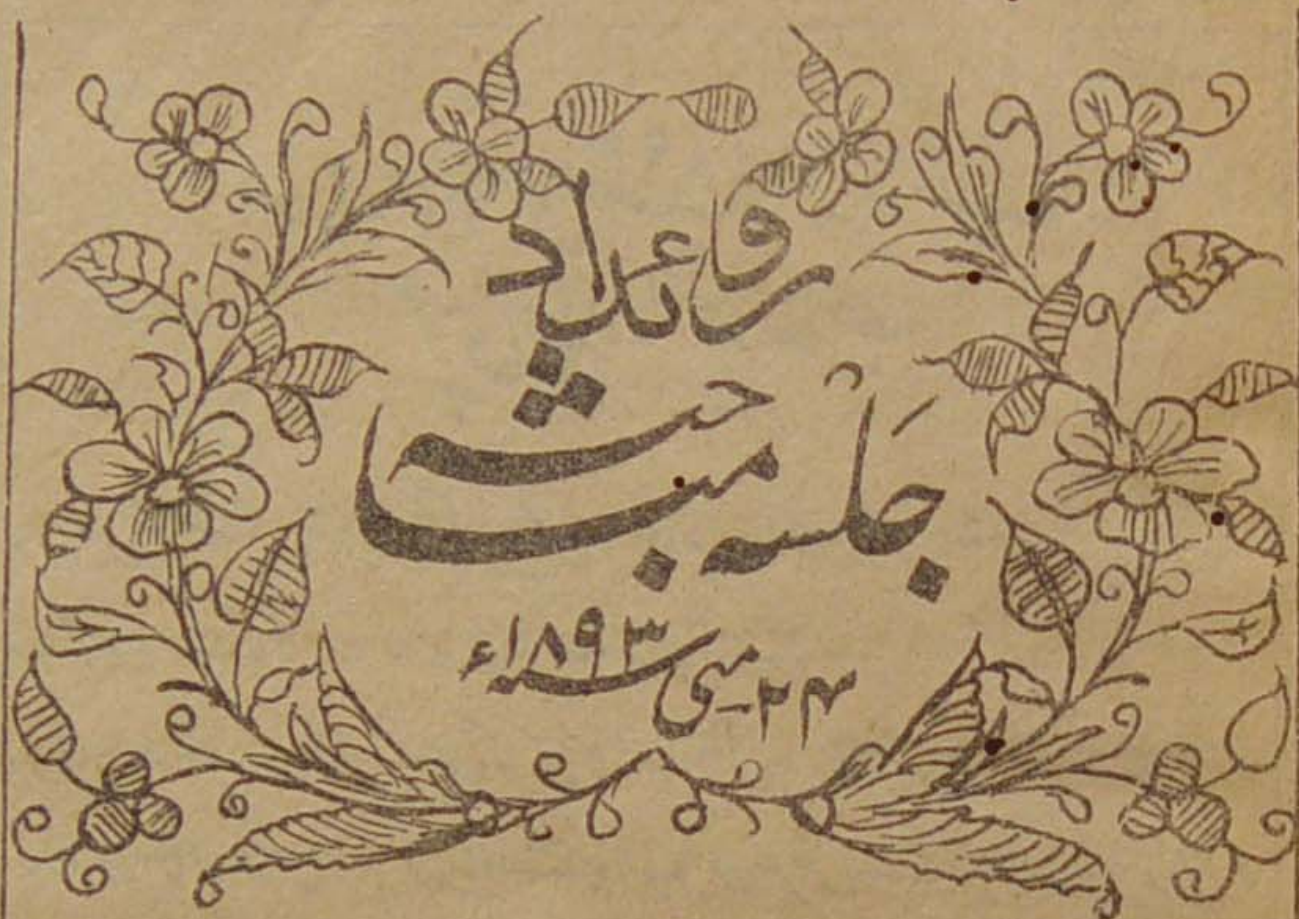 روئداد
جلسہ مباحثہ
۲۴۔مئی ۱۸۹۳ء